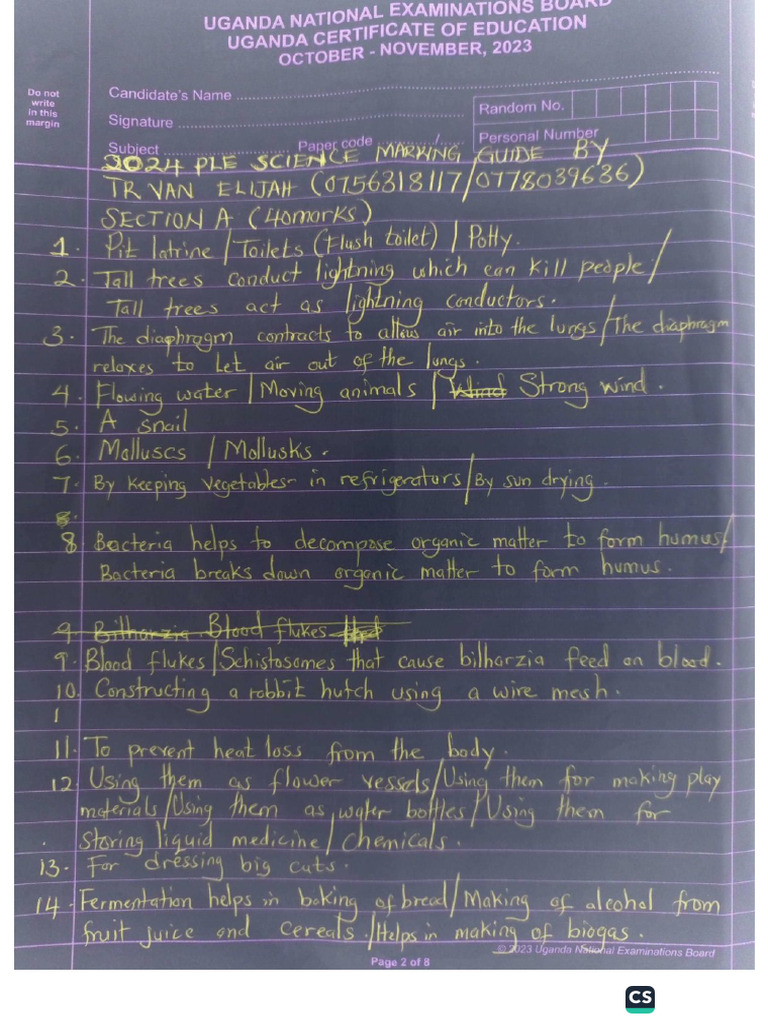 UGANDA NATIONAL EXAMINATIONS BOARD
UGANDA CERTIFICATE OF EDUCATION
OCTOBER - NOVEMBER, 2023
Do not
write
in this
margin
Candidate's Name
Random No.
Signature
Personal Number
Subject Paper code
2024 PLE SCIENCE MARKING GUIDE BY
TR VAN ELIJAH (0756318117/0778039636)
SECTION A (40marks)
1. Pit latrine / Toilets (Flush toilet) / Potty.
2. Tall trees conduct lightning which can kill people/
Tall trees act as lightning conductors.
3. The diaphragm contracts to allow air into the lungs/The diaphragm
relaxes to let air out of the lungs.
4. Flowing water / Moving animals / Wind Strong wind.
5. A snail
6. Molluscs / Mollusks.
7. By keeping vegetables in refrigerators/By sun drying.
8.
8 Bacteria helps to decompose organic matter to form humus/
Bacteria breaks down organic matter to form humus.
9 Bilharzia Blood flukes
9. Blood flukes/Schistosomes that cause bilharzia feed on blood.
10. Constructing a rabbit hutch using a wire mesh.
1
11. To prevent heat loss from the body.
12. Using them as flower vessels/Using them for making play
materials/Using them as water bottles/Using them for
storing liquid medicine/Chemicals.
13. For dressing big cuts.
14. Fermentation helps in baking of bread/Making of alcohol from
fruit juice and cereals./Helps in making of biogas.
© 2023 Uganda National Examinations Board
Page 2 of 8
CS